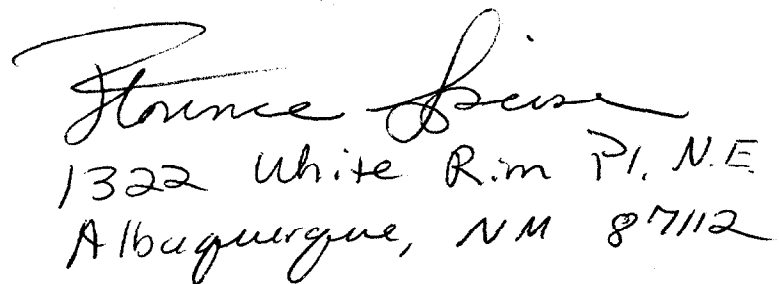 Florence Speise
1322 White Rim Pl. N.E.
Albuquerque, NM 87112